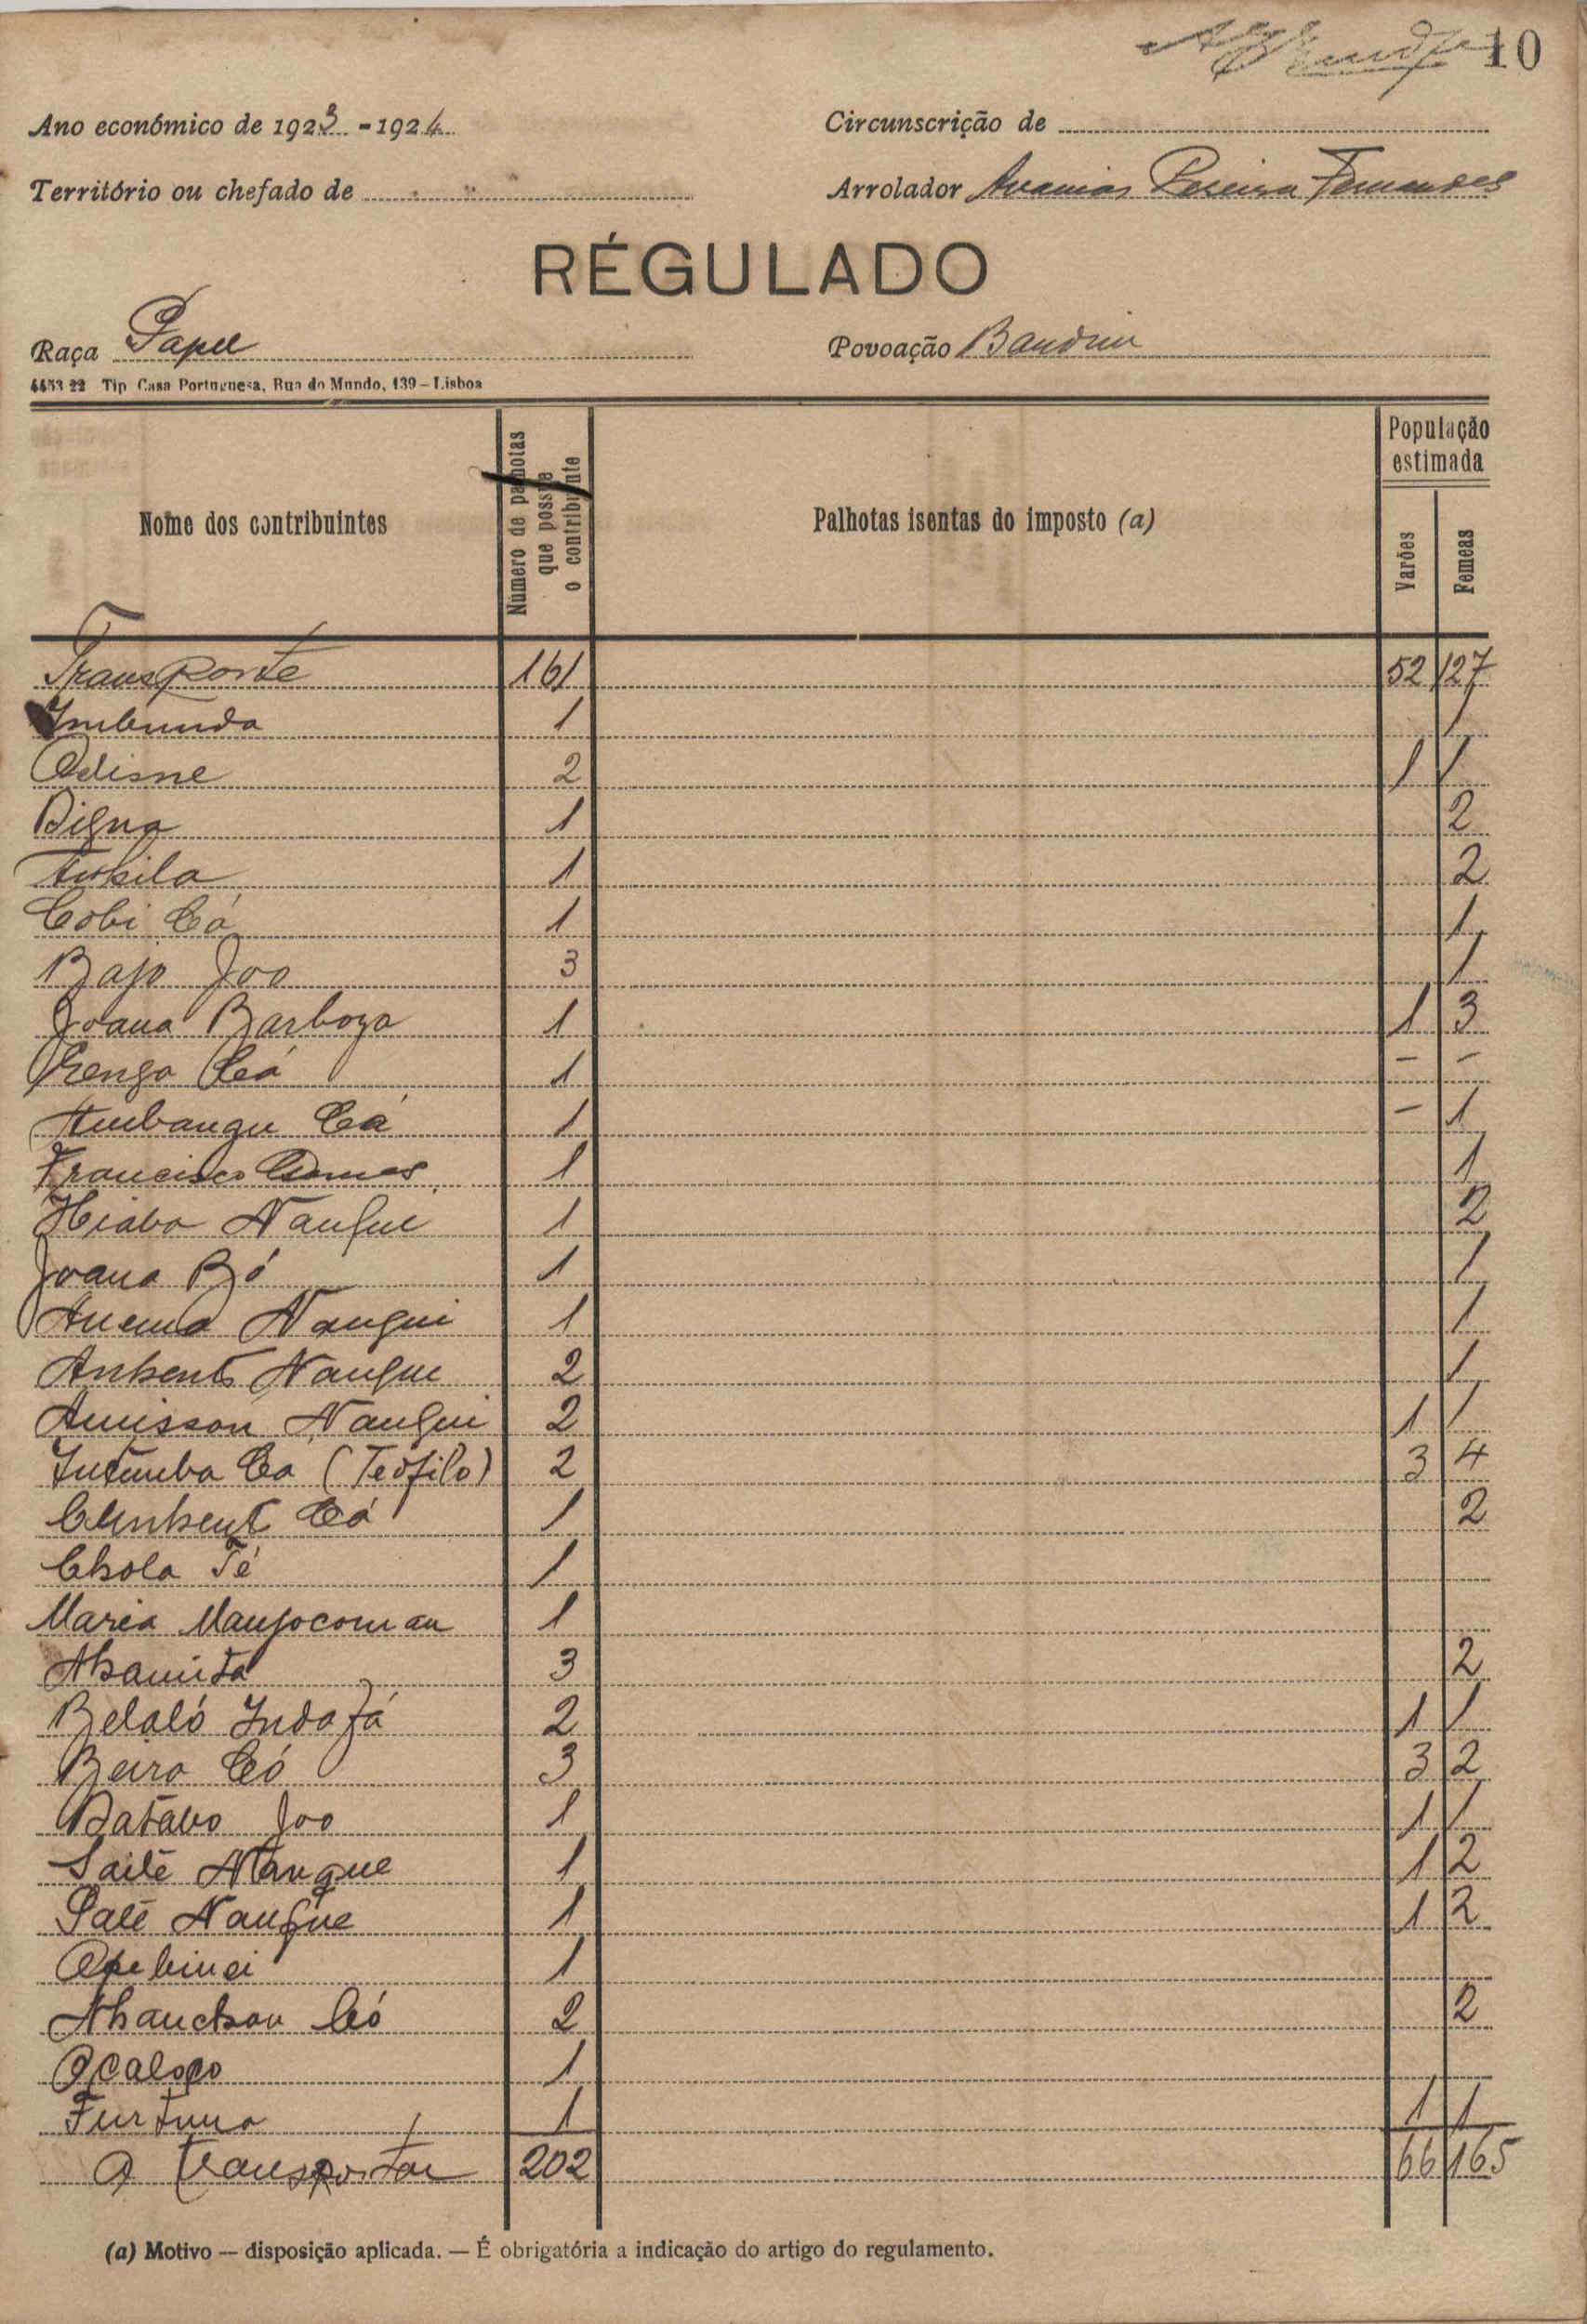 10
Ano económico de 1923 - 1924
Circunscrição de
Território ou chefado de
Arrolador Ananias Pereira Fernandes
RÉGULADO
Raça Papel
Povoação Bandim
4453 22 Tip Casa Portuguesa, Rua do Mundo, 139 - Lisboa
Nome dos contribuintes
Número de palhotas que possue o contribuinte
Palhotas isentas do imposto (a)
População estimada
Varões
Femeas
Transporte 161 52 127
Imbunda 1 1
Odisne 2 1 1
Digna 1 2
1 2
Cobi Cá 1 1
Bajo Joo 3 1
Joana Barboza 1 1 3
Cá 1 - -
Cá 1 - 1
Francisco Gomes 1 1
Nangui 1 2
Joana Bó 1 1
Nangui 1 1
Nangue 2 1
Nangui 2 1 1
Cá (Teófilo) 2 3 4
Cá 1 2
Chola Té 1
Maria 1
3 2
Belaló Indafá 2 1 1
Beira Có 3 3 2
Batabo Joo 1 1 1
Saité Nangue 1 1 2
Saté Nangue 1 1 2
1
Có 2 2
1
Furtuna 1 1 1
A transportar 202 66 165
(a) Motivo — disposição aplicada. — É obrigatória a indicação do artigo do regulamento.